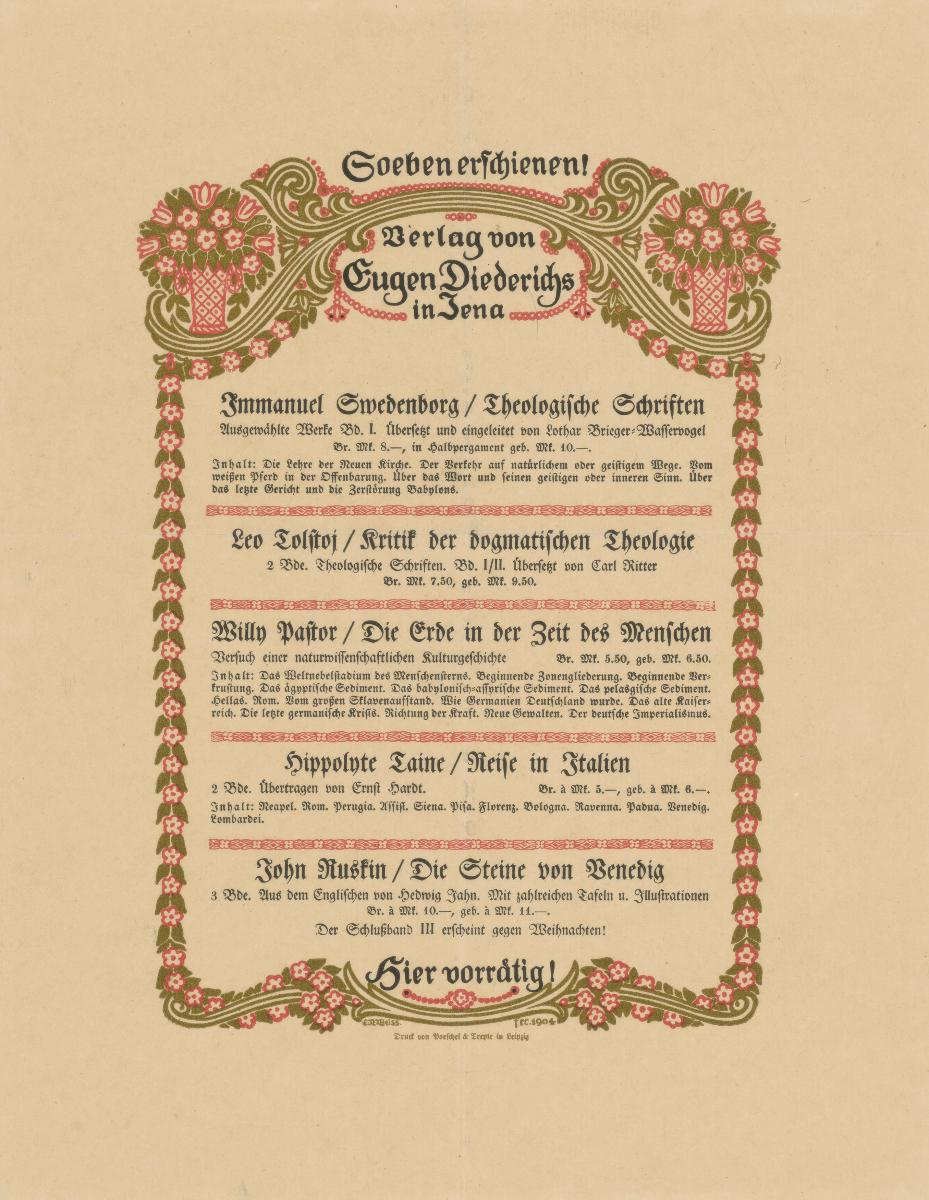 Soeben erschienen!
Verlag von
Eugen Diederichs
in Jena
Immanuel Swedenborg / Theologische Schriften
Ausgewählte Werke Bd. I. Übersetzt und eingeleitet von Lothar Brieger-Wasservogel
Br. Mk. 8.—, in Halbpergament geb. Mk. 10.—.
Inhalt: Die Lehre der Neuen Kirche. Der Verkehr auf natürlichem oder geistigem Wege. Vom
weißen Pferd in der Offenbarung. Über das Wort und seinen geistigen oder inneren Sinn. Über
das letzte Gericht und die Zerstörung Babylons.
Leo Tolstoj / Kritik der dogmatischen Theologie
2 Bde. Theologische Schriften. Bd. I/II. Übersetzt von Carl Ritter
Br. Mk. 7.50, geb. Mk. 9.50.
Willy Pastor / Die Erde in der Zeit des Menschen
Versuch einer naturwissenschaftlichen Kulturgeschichte Br. Mk. 5.50, geb. Mk. 6.50.
Inhalt: Das Weltnebelstadium des Menschensterns. Beginnende Zonengliederung. Beginnende Ver-
krustung. Das ägyptische Sediment. Das babylonisch-assyrische Sediment. Das pelasgische Sediment.
Hellas. Rom. Vom großen Sklavenaufstand. Wie Germanien Deutschland wurde. Das alte Kaiser-
reich. Die letzte germanische Krisis. Richtung der Kraft. Neue Gewalten. Der deutsche Imperialismus.
Hippolyte Taine / Reise in Italien
2 Bde. Übertragen von Ernst Hardt. Br. à Mk. 5.—, geb. à Mk. 6.—.
Inhalt: Neapel. Rom. Perugia. Assisi. Siena. Pisa. Florenz. Bologna. Ravenna. Padua. Venedig.
Lombardei.
John Ruskin / Die Steine von Venedig
3 Bde. Aus dem Englischen von Hedwig Jahn. Mit zahlreichen Tafeln u. Illustrationen
Br. à Mk. 10.—, geb. à Mk. 11.—.
Der Schlußband III erscheint gegen Weihnachten!
Hier vorrätig!
E.R.Weiss. fec. 1904
Druck von Poeschel & Trepte in Leipzig